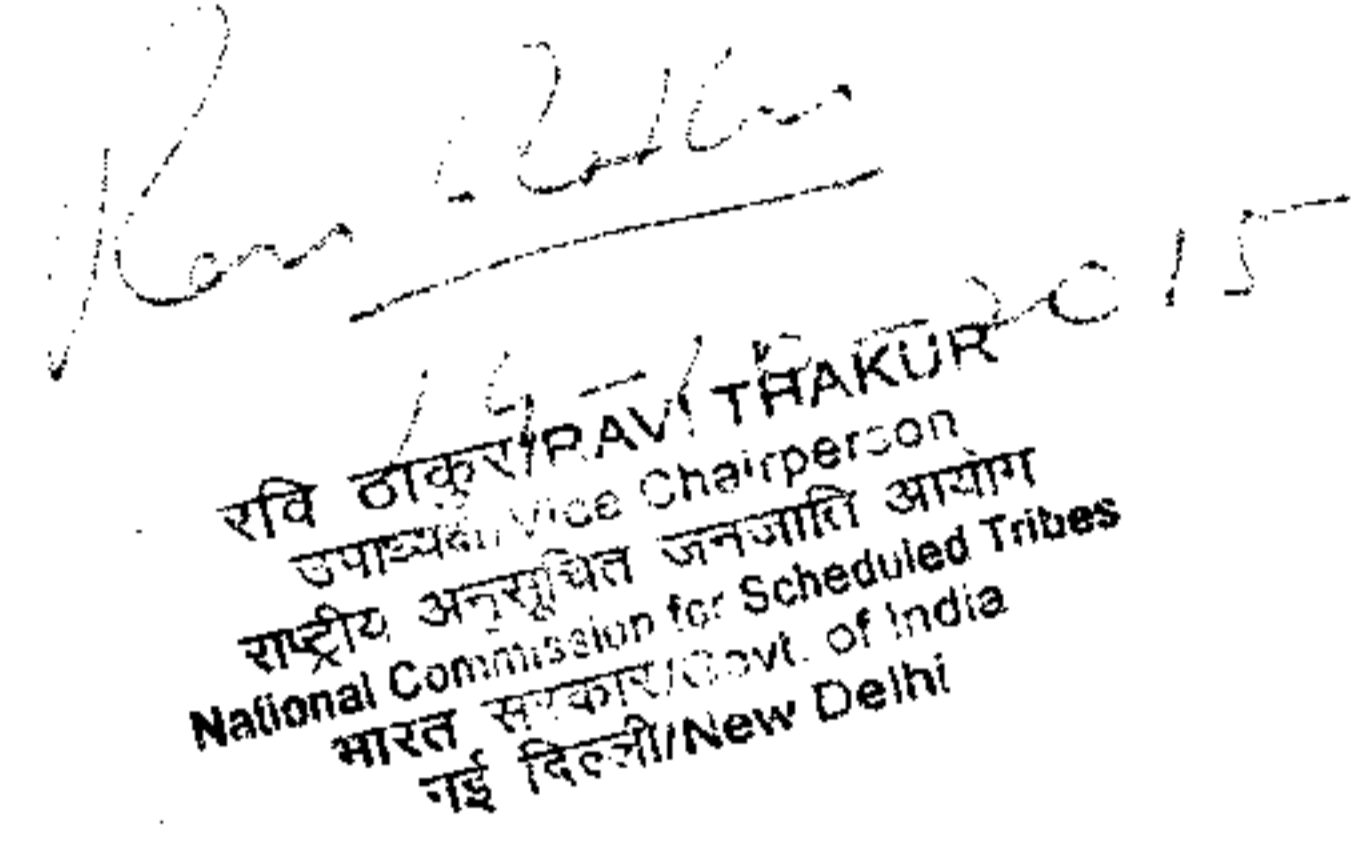 2015
रवि ठाकुर/RAVI THAKUR
उपाध्यक्ष/Vice Chairperson
राष्ट्रीय अनुसूचित जनजाति आयोग
National Commission for Scheduled Tribes
भारत सरकार/Govt. of India
नई दिल्ली/New Delhi